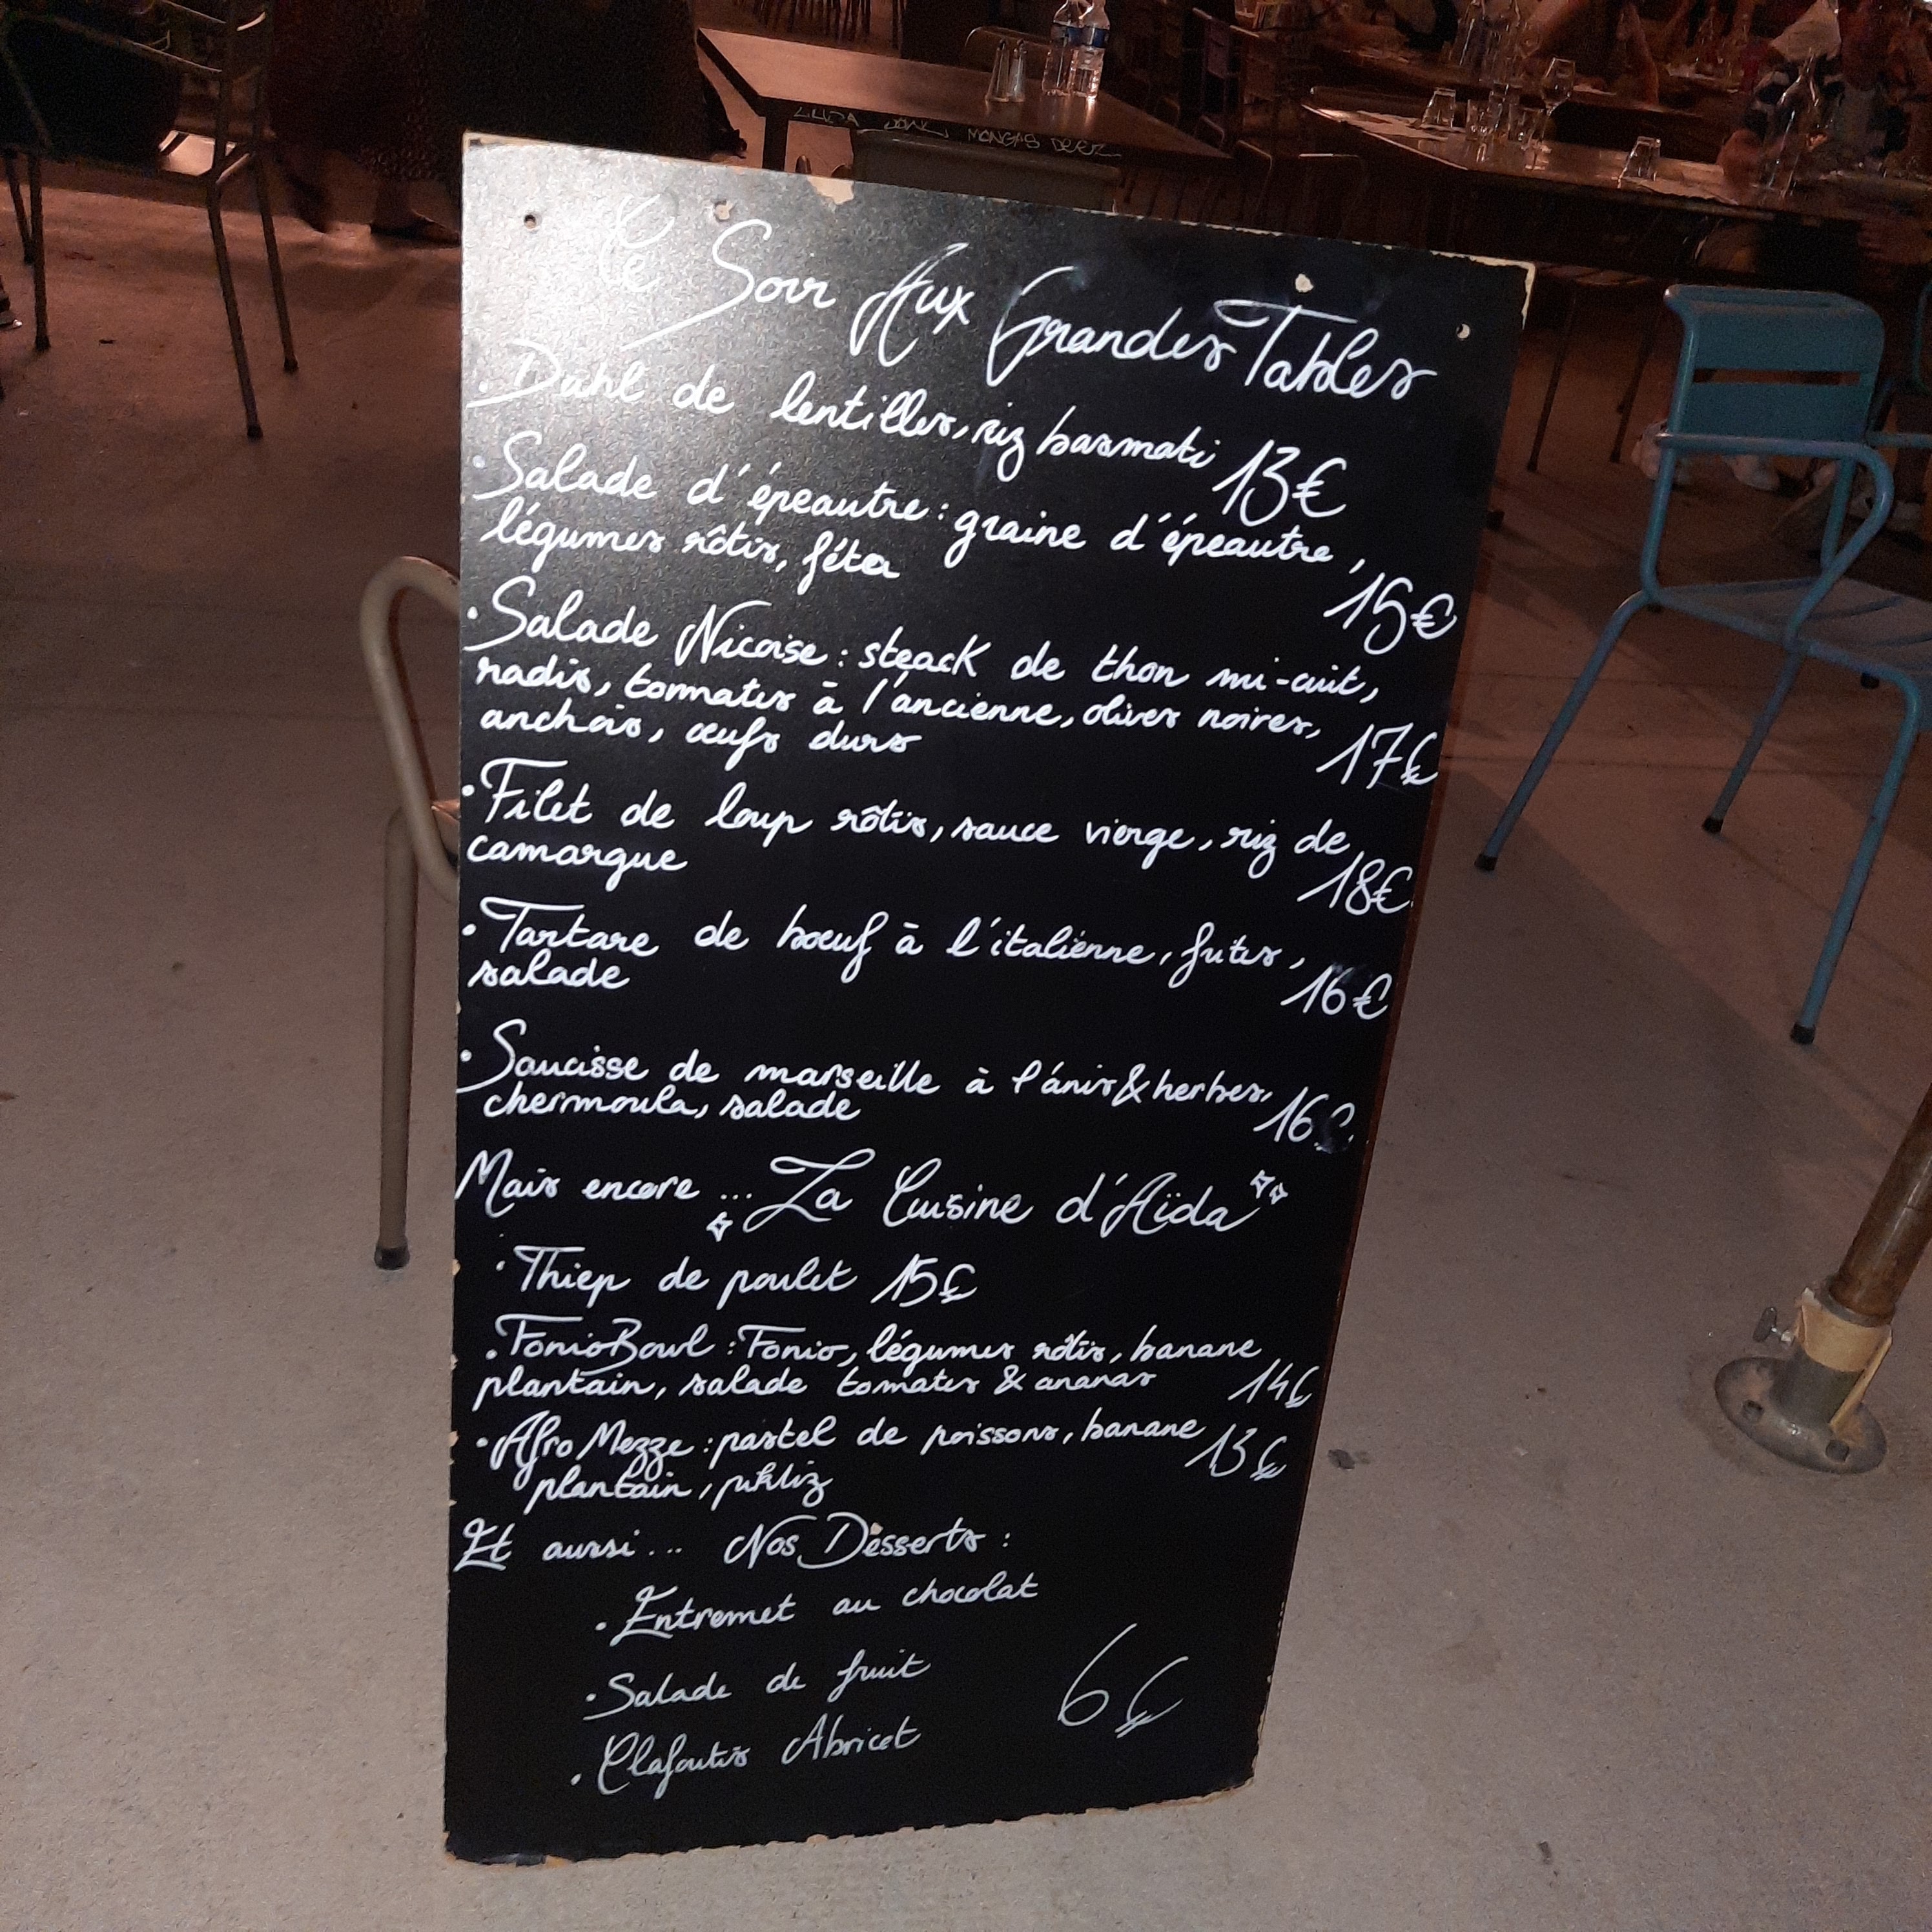 Ce Soir Aux Grandes Tables
. Dahl de lentilles, riz basmati 13€
. Salade d'épeautre : graine d'épeautre,
légumes rôtis, féta 15€
. Salade Nicoise : steack de thon mi-cuit,
radis, tomates à l'ancienne, olives noires,
anchois, œufs durs 17€
. Filet de loup rôtis, sauce vierge, riz de
camargue 18€
. Tartare de bœuf à l'italienne, frites,
salade 16€
. Saucisse de marseille à l'anis & herbes,
chermoula, salade 16€
Mais encore ... La Cuisine d'Aïda
. Thiep de poulet 15€
. Fonio Bowl : Fonio, légumes rôtis, banane
plantain, salade tomates & ananas 14€
. Afro Mezze : pastel de poissons, banane 13€
plantain, pikliz
Et aussi... Nos Desserts :
. Entremet au chocolat
. Salade de fruit 6€
. Clafoutis Abricot